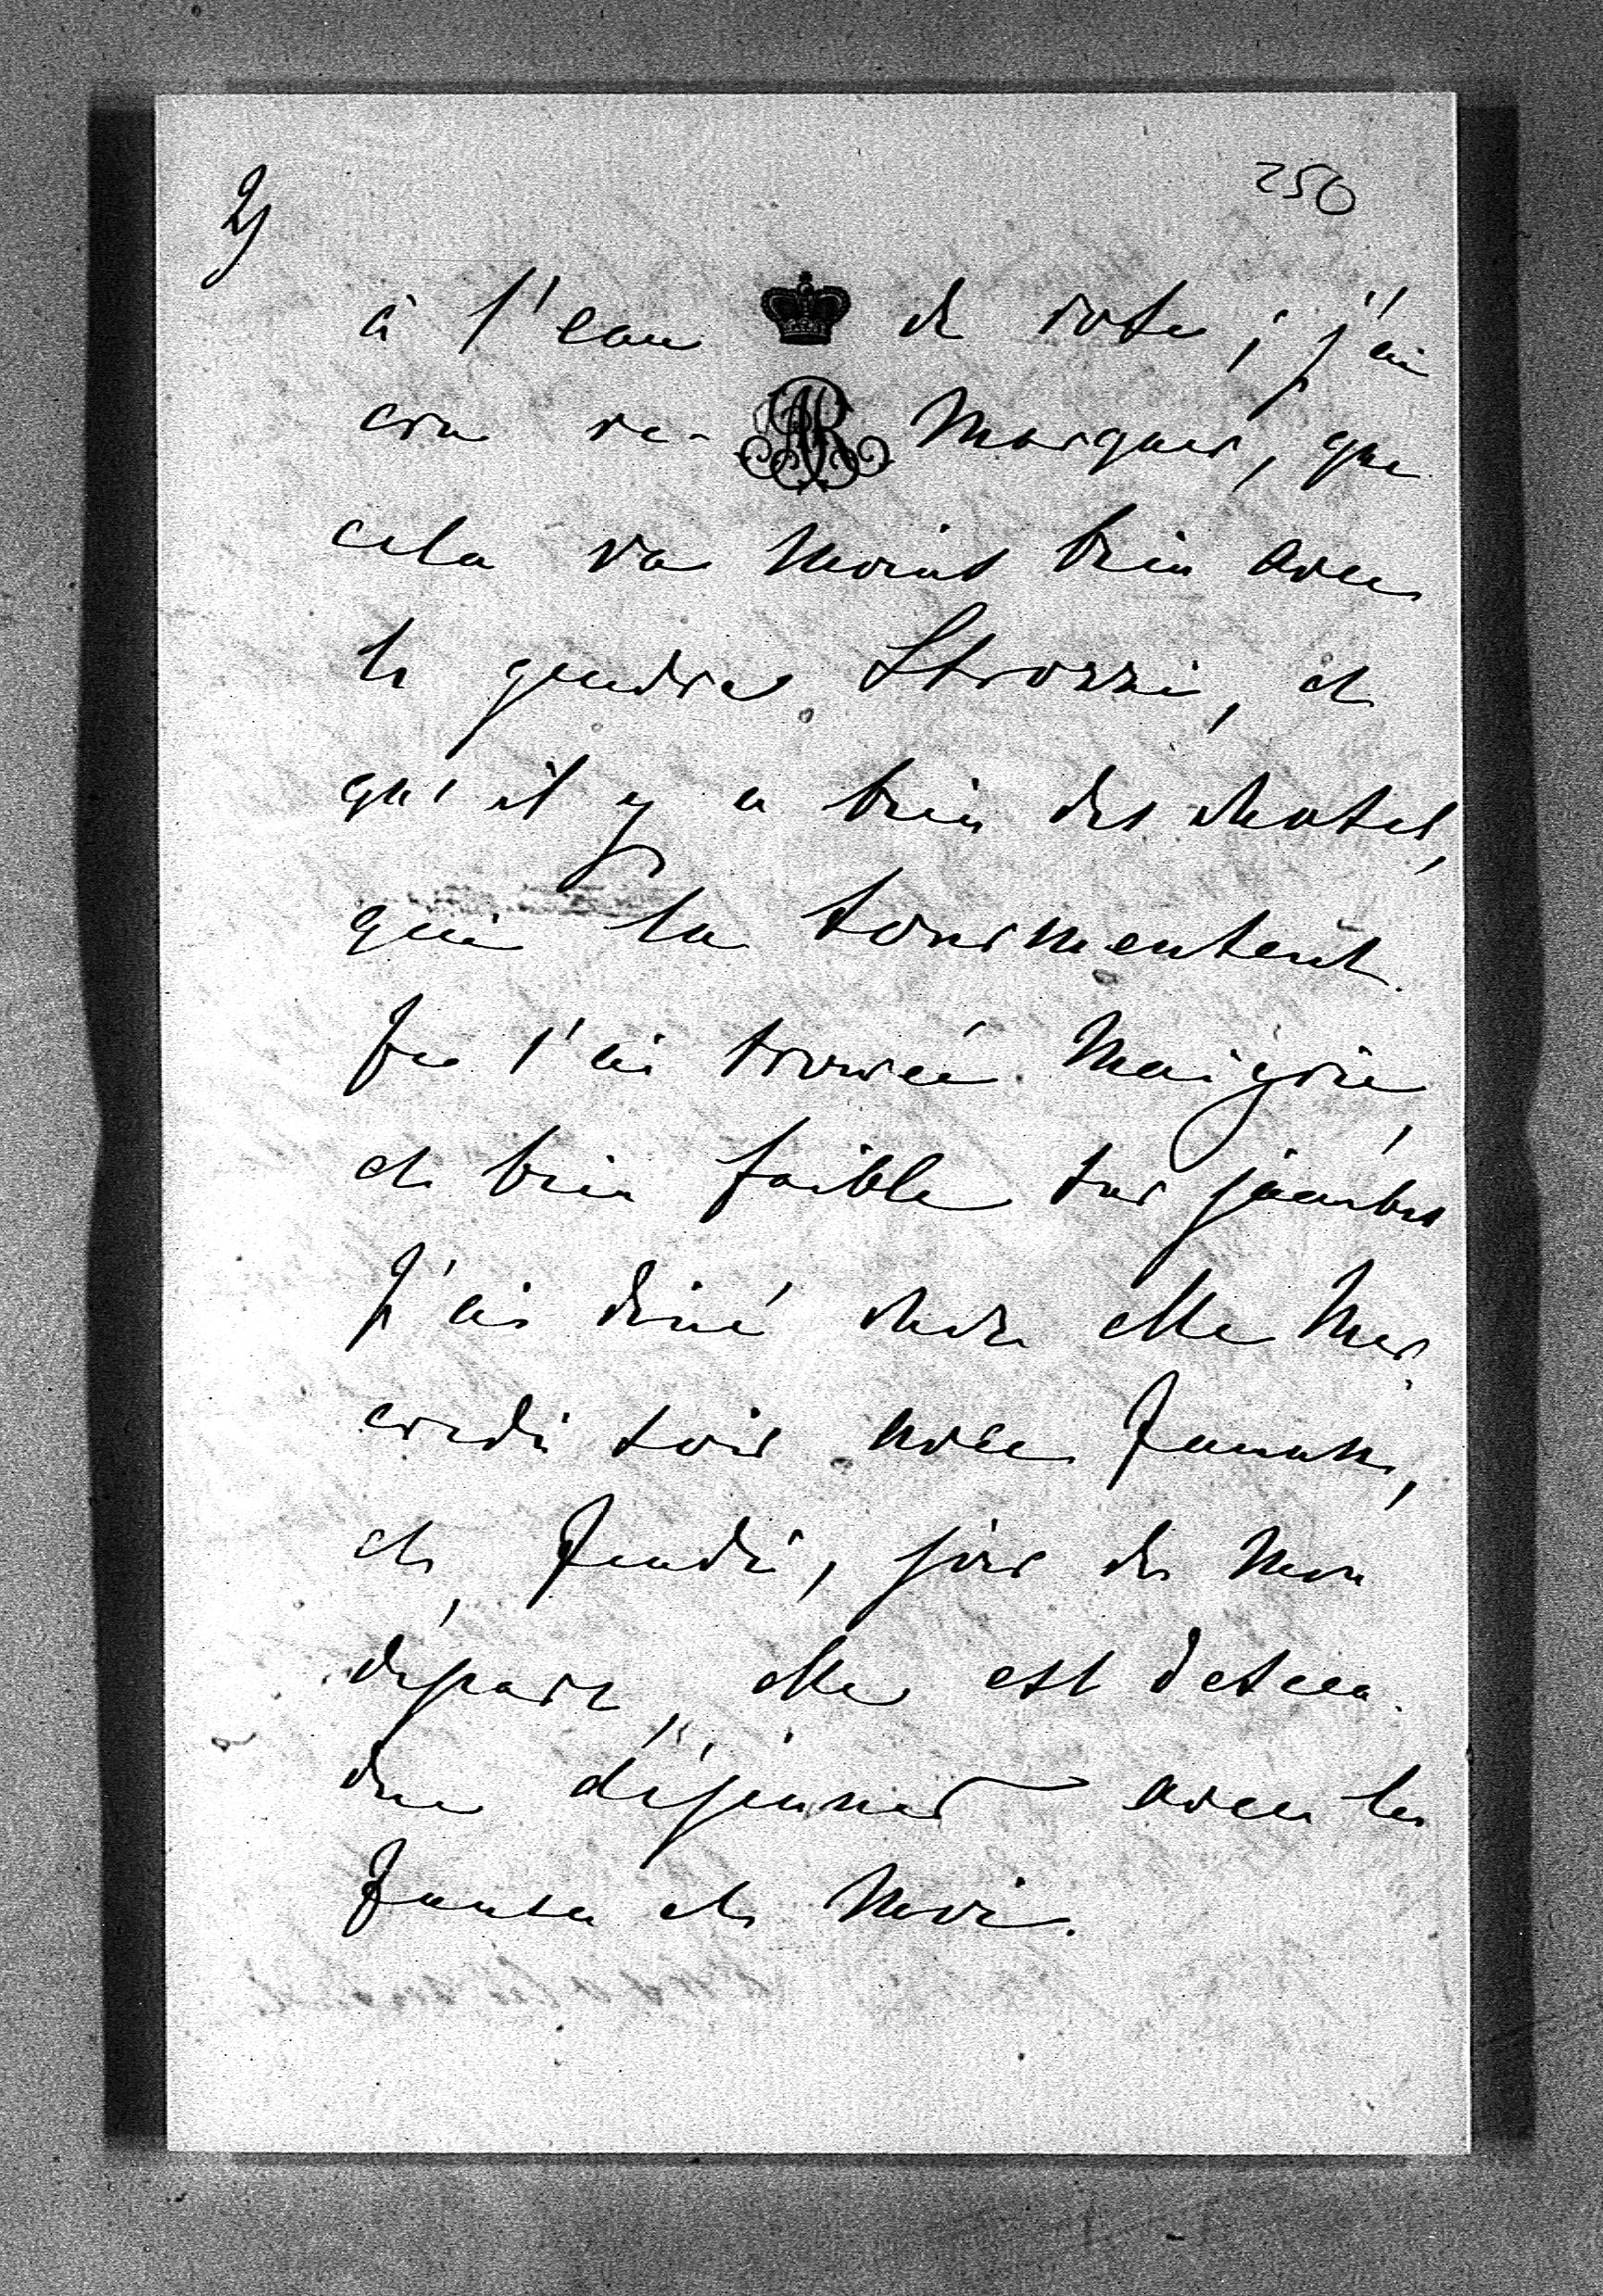 2)
250
à l'eau de rose; j'ai
cru re-marquer, que
cela va moins bien avec
le gendre Strozzi, et
qu'il y a bien des choses,
qui la tourmentent.
Je l'ai trouvée maigrie,
et bien faible sur jambes
J'ai diné chez elle Mer
credi soir avec
et Jeudi, jour de mon
départ, elle est descen
due déjeuner avec les
et moi.